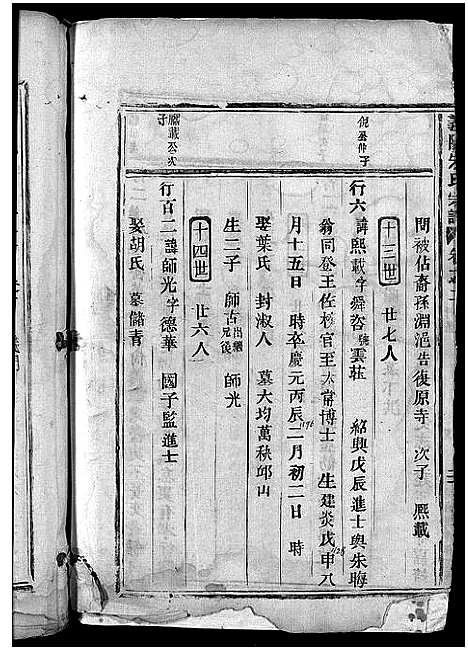 間被佔裔孫淵浥告復原寺 次子 熈載
十三世 廿七人
倪公仲子
行六 諱熈載字舜咨號雲莊 紹興戊辰進士與朱晦
翁同登王佐榜官至太常博士 生建炎戊申八
1128
月十五日 時卒慶元丙辰二月初二日 時
1196
娶葉氏 封淑人 墓大均萬秧邱山
生二子 師古出繼兄後 師光
十四世 廿六人
熈載公次子
行百二諱師光字德華 國子監進士
娶胡氏 墓儲青